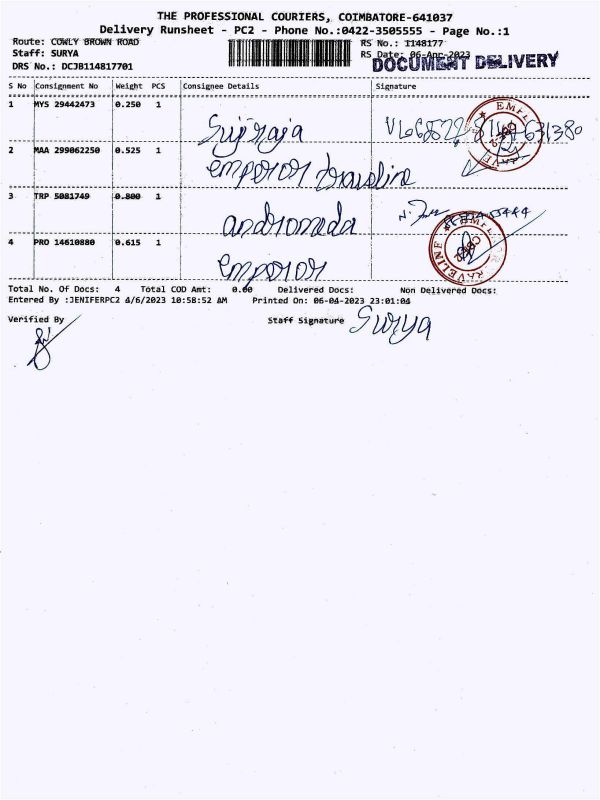 THE PROFESSIONAL COURIERS, COIMBATORE-641037
Delivery Runsheet - PC2 - Phone No.:0422-3505555 - Page No.:1
Route: COWLY BROWN ROAD
RS No.: 1148177
Staff: SURYA
RS Date: 06-Apr-2023
DOCUMENT DELIVERY
DRS No.: DCJB114817701
S No Consignment No Weight PCS Consignee Details Signature
1 MYS 29442473 0.250 1
Sujiraja
2 MAA 299062250 0.525 1
emperor traveline
3 TRP 5081749 0.800 1
andromeda
4 PRO 14610880 0.615 1
emperor
Total No. Of Docs: 4 Total COD Amt: 0.00 Delivered Docs: Non Delivered Docs:
Entered By :JENIFERPC2 4/6/2023 10:58:52 AM Printed On: 06-04-2023 23:01:04
Verified By Staff Signature Surya